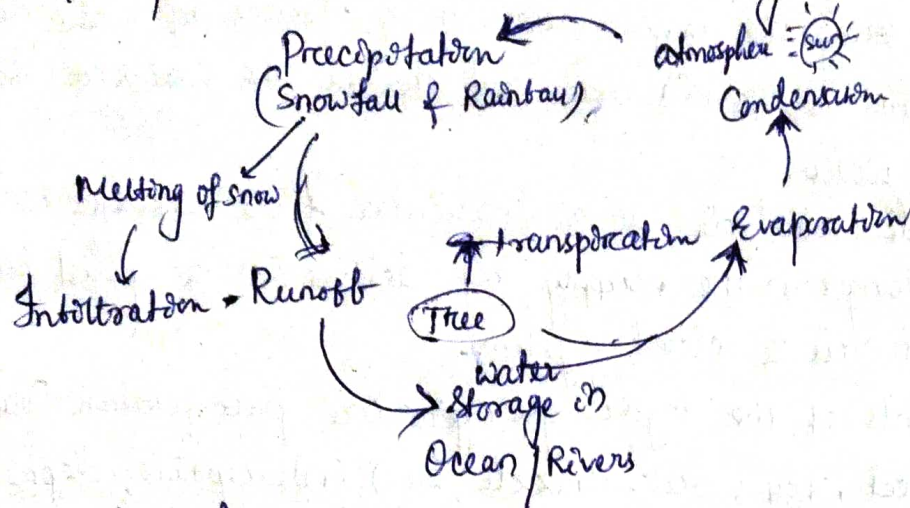 Precipitation
(Snowfall & Rainfall),
atmosphere
Sun
Condensation
Melting of snow
transpiration
Evaporation
Infiltration
Runoff
Tree
water
Storage in
Ocean / Rivers